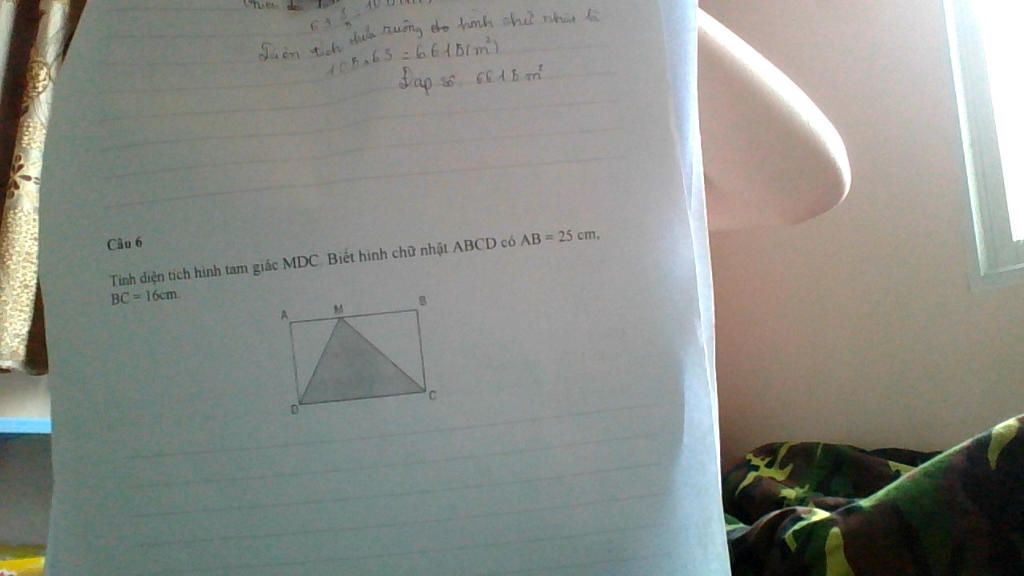 Diện tích thửa ruộng do hình chữ nhật là
105 x 63 = 6615 (m²)
Đáp số 6615 m²
Câu 6
Tính diện tích hình tam giác MDC. Biết hình chữ nhật ABCD có AB = 25 cm,
BC = 16cm.
A M B
D C